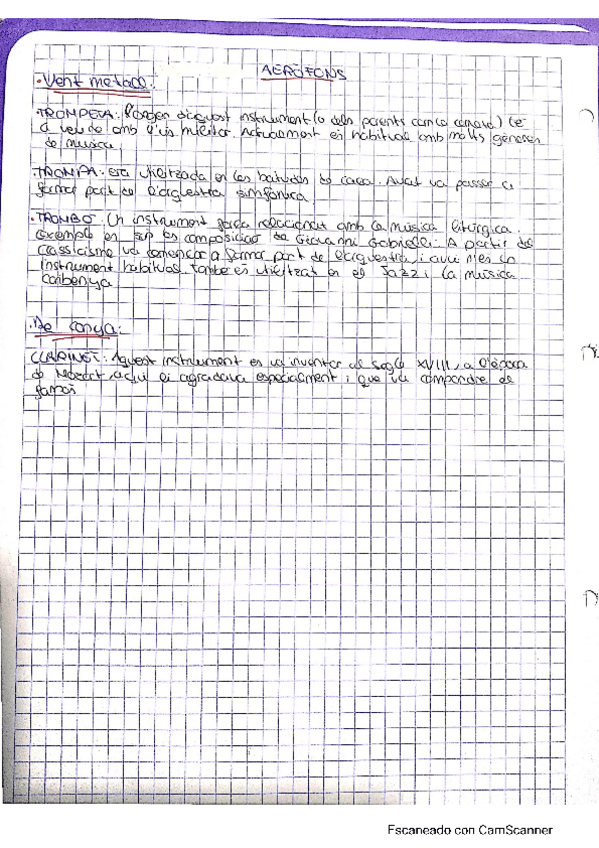 AERÒFONS
· Vent metall:
· TROMPETA: l'origen d'aquest instrument (o dels parents com la corneta) té
a veure amb l'ús militar. Actualment és habitual amb molts gèneres
de musica
· TROMPA: era utilitzada en les batudes de caça. Aviat va passar a
formar part de l'orquestra simfònica
· TROMBÓ: Un instrument relacionat amb la música litúrgica.
exemple en les composicions de Giovanni Gabrielli. A partir del
classicisme va començar a formar part de l'orquestra, i avui n'és un
instrument habitual. també es utilitzat en el Jazz i la música
caribenya
· De canya:
CLARINET: Aquest instrument es va inventar al segle XVIII, a l'època
de Mozart, a qui li agradava especialment i que va compondre
famós
Escaneado con CamScanner